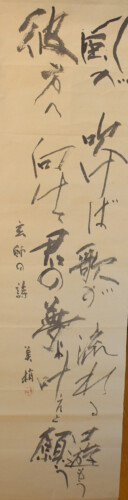 風が吹けば歌が流れる口遊もう
彼方へ向けて君の夢よ叶えと願う
玄師の詩